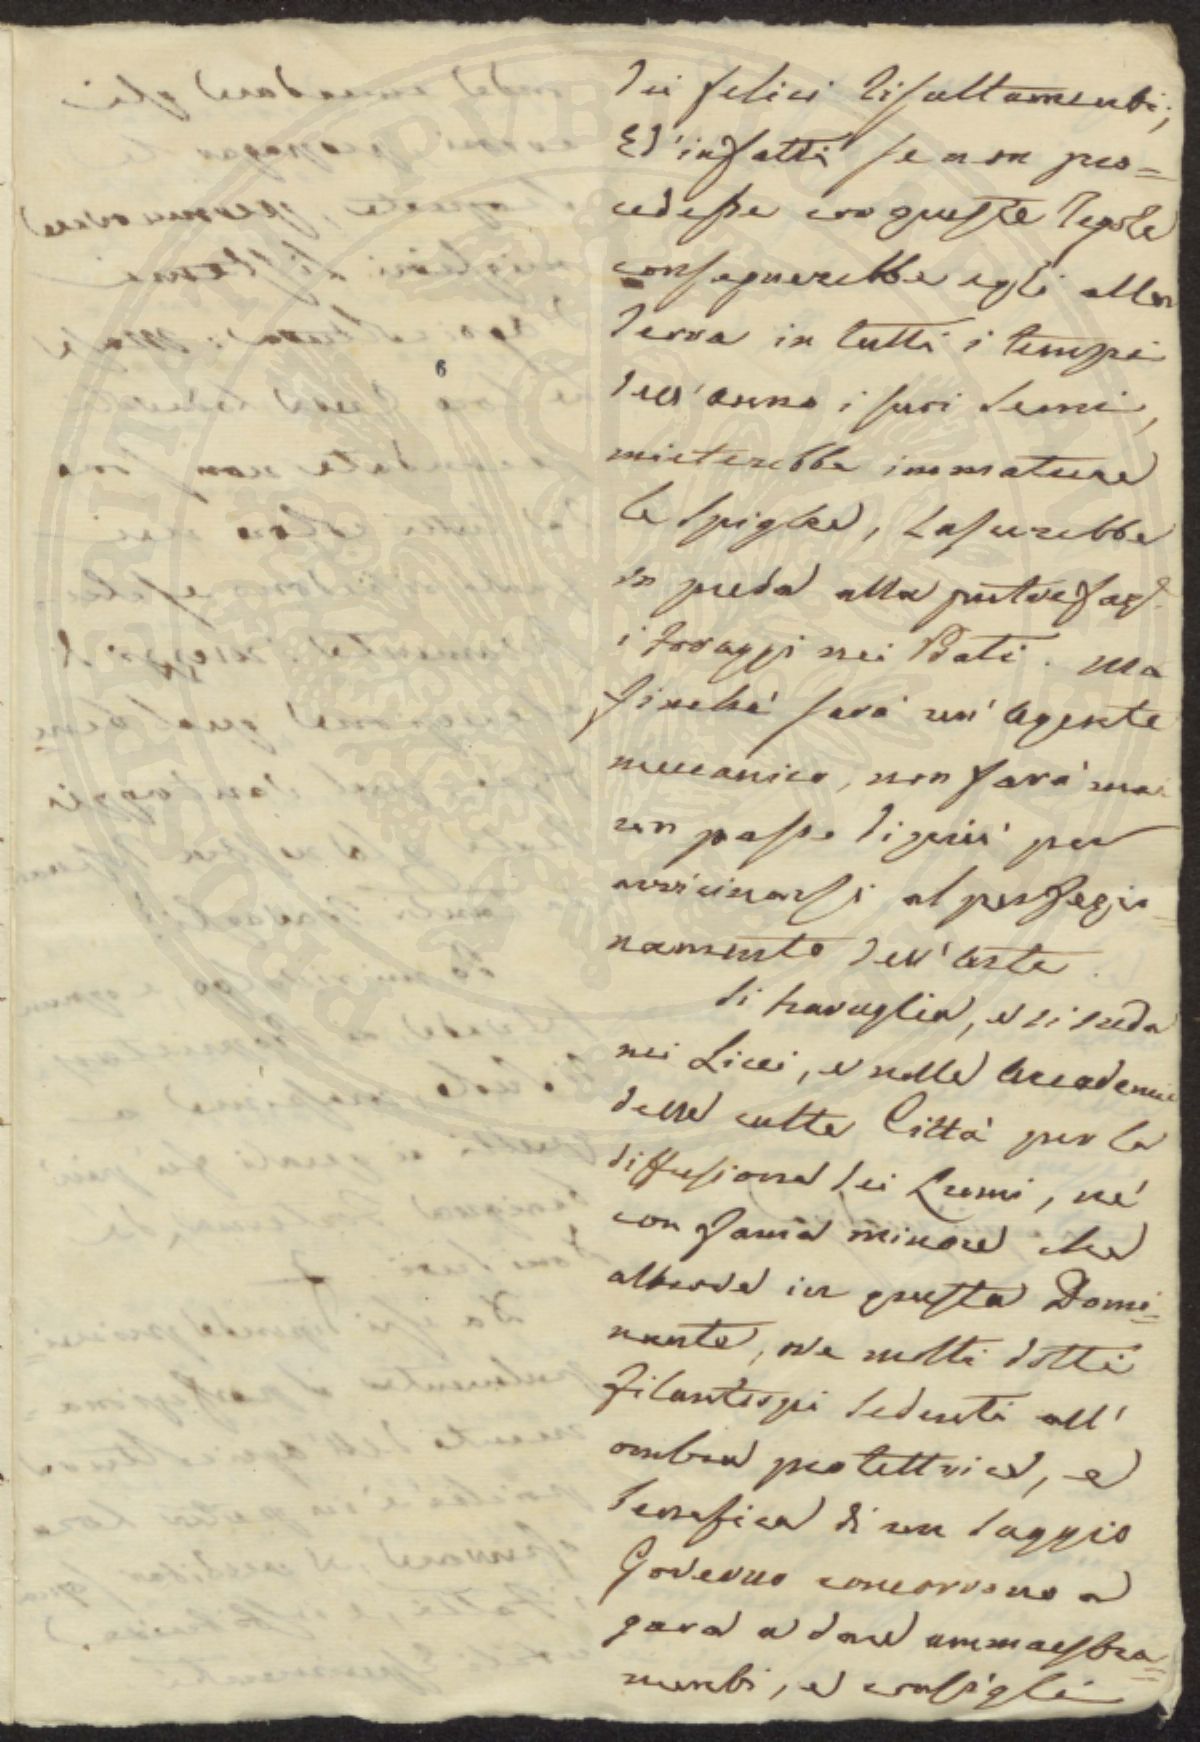 dei felici risultamenti;
Ed' infatti se non pro=
cedesse con queste regole
consegnerebbe egli alla
terra in tutti i tempi
dell' anno i suoi semi,
mieterebbe immature
le spighe, lascierebbe
in preda alla putrefaz.e
i foraggi nei Prati. Ma
finché sarà un' Agente
meccanico, non farà mai
un passo di più per
avvicinarsi al perfezio=
namento dell' Arte.
Si travaglia, e si suda
nei Licei, e nelle Accademie
delle culte Città per la
diffusione dei Lumi, né
con fama minore che
altrove in questa Domi=
nante, ove molti dotti
filantropi sedenti all'
ombra protettrice, e
benefica di un saggio
Governo concorrono a
gara a dare ammaestra=
menti, e consigli